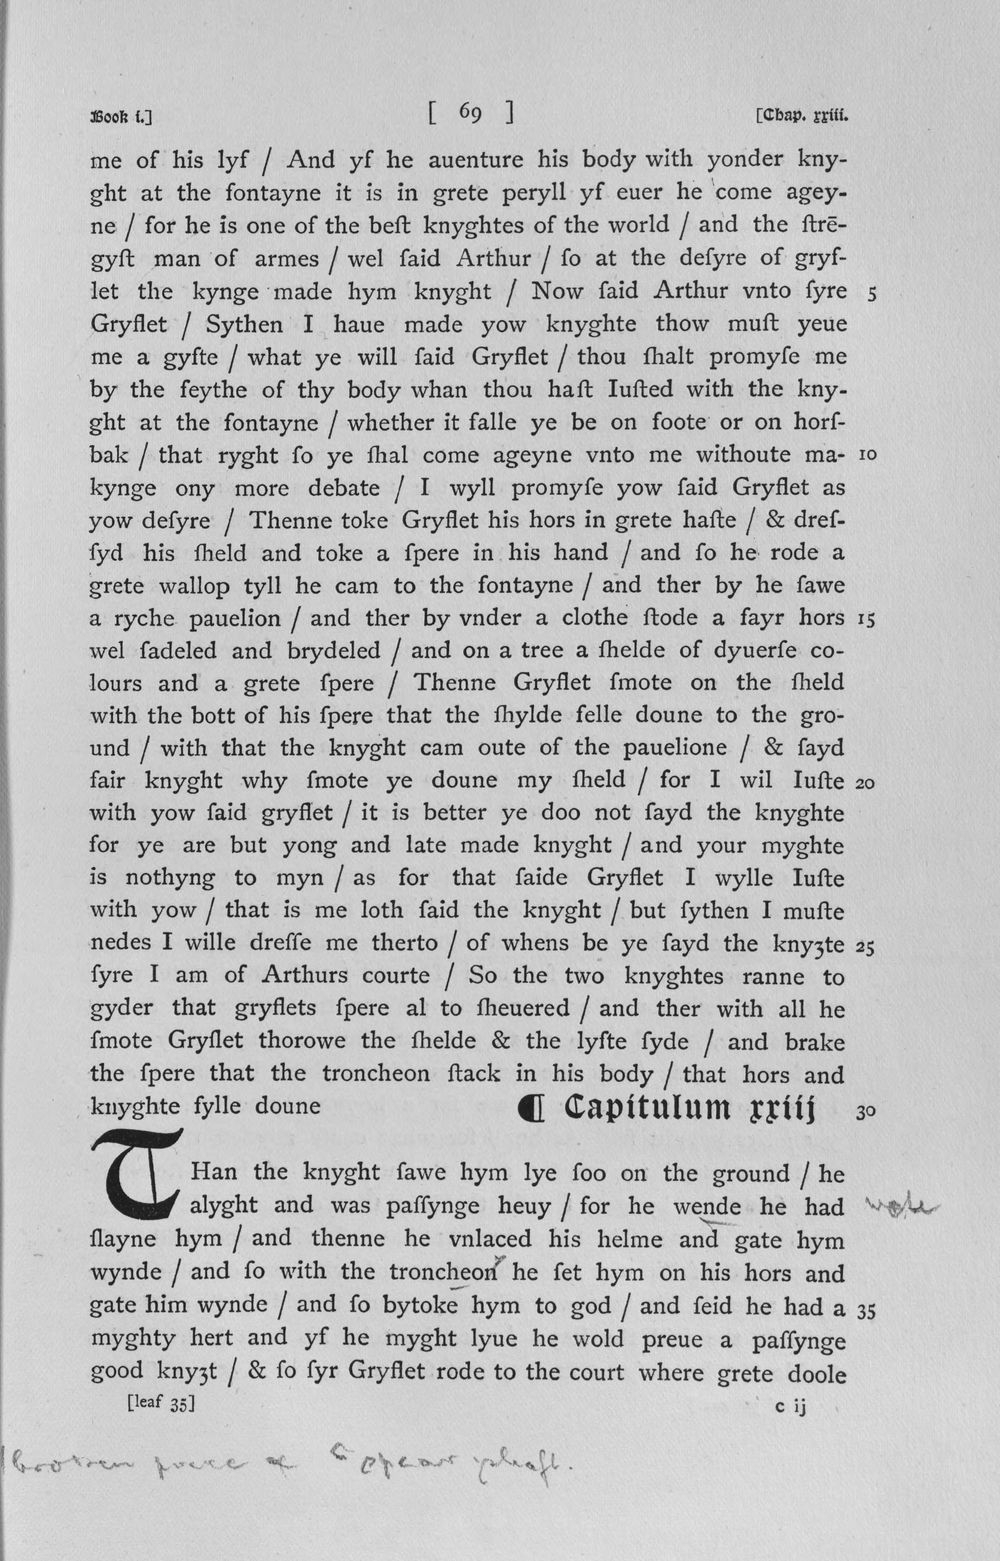 Book i.] [ 69 ] [Chap. xxiii.
me of his lyf / And yf he auenture his body with yonder kny-
ght at the fontayne it is in grete peryll yf euer he come agey-
ne / for he is one of the beſt knyghtes of the world / and the ſtrē-
gyſt man of armes / wel ſaid Arthur / ſo at the deſyre of gryf-
let the kynge made hym knyght / Now ſaid Arthur vnto ſyre 5
Gryflet / Sythen I haue made yow knyghte thow muſt yeue
me a gyfte / what ye will ſaid Gryflet / thou ſhalt promyſe me
by the feythe of thy body whan thou haſt Iuſted with the kny-
ght at the fontayne / whether it falle ye be on foote or on horſ-
bak / that ryght ſo ye ſhal come ageyne vnto me withoute ma- 10
kynge ony more debate / I wyll promyſe yow ſaid Gryflet as
yow deſyre / Thenne toke Gryflet his hors in grete haſte / & dreſ-
ſyd his ſheld and toke a ſpere in his hand / and ſo he rode a
grete wallop tyll he cam to the fontayne / and ther by he ſawe
a ryche pauelion / and ther by vnder a clothe ſtode a fayr hors 15
wel ſadeled and brydeled / and on a tree a ſhelde of dyuerſe co-
lours and a grete ſpere / Thenne Gryflet ſmote on the ſheld
with the bott of his ſpere that the ſhylde felle doune to the gro-
und / with that the knyght cam oute of the pauelione / & ſayd
fair knyght why ſmote ye doune my ſheld / for I wil Iuſte 20
with yow ſaid gryflet / it is better ye doo not ſayd the knyghte
for ye are but yong and late made knyght / and your myghte
is nothyng to myn / as for that ſaide Gryflet I wylle Iuſte
with yow / that is me loth ſaid the knyght / but ſythen I muſte
nedes I wille dreſſe me therto / of whens be ye ſayd the knyȝte 25
ſyre I am of Arthurs courte / So the two knyghtes ranne to
gyder that gryflets ſpere al to ſheuered / and ther with all he
ſmote Gryflet thorowe the ſhelde & the lyfte ſyde / and brake
the ſpere that the troncheon ſtack in his body / that hors and
knyghte fylle doune ¶ Capitulum xxiij 30
THan the knyght ſawe hym lye ſoo on the ground / he
alyght and was paſſynge heuy / for he wende he had
ſlayne hym / and thenne he vnlaced his helme and gate hym
wynde / and ſo with the troncheon he ſet hym on his hors and
gate him wynde / and ſo bytoke hym to god / and ſeid he had a 35
myghty hert and yf he myght lyue he wold preue a paſſynge
good knyȝt / & ſo ſyr Gryflet rode to the court where grete doole
[leaf 35] c ij
broken piece of spear shaft.